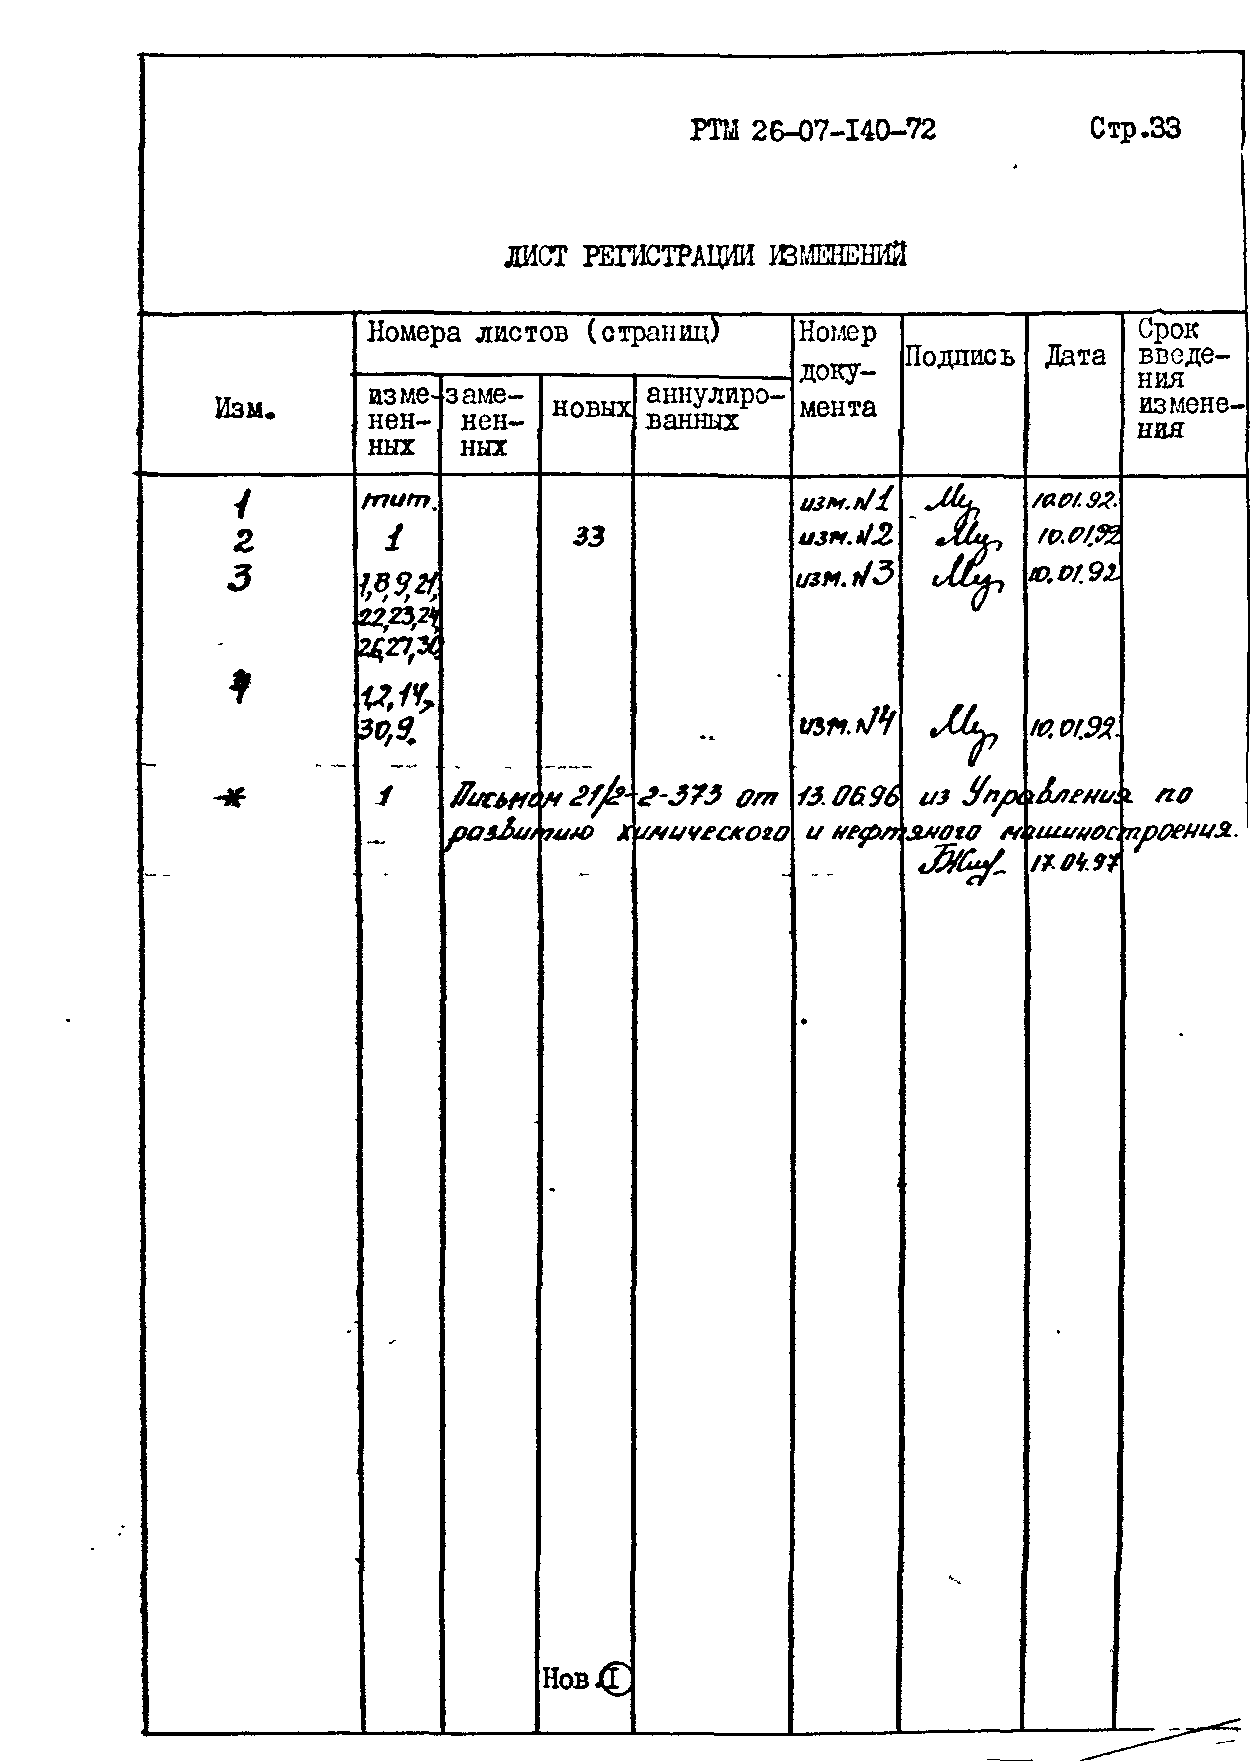 РТМ 26-07-I40-72 Стр.33
ЛИСТ РЕГИСТРАЦИИ ИЗМЕНЕНИЙ
Изм.
Номера листов (страниц)
изме-
нен-
ных
заме-
нен-
ных
новых
аннулиро-
ванных
Номер
доку-
мента
Подпись
Дата
Срок
введе-
ния
измене-
ния
1 тит. изм.№1 10.01.92.
2 1 33 изм.№2 10.01.92
3 1,8,9,21, изм.№3 10.01.92
22,23,24,
26,27,30
4 1,2,14,
30,9. изм.№4 10.01.92.
* 1 Письмом 21/2-2-373 от 13.06.96 из Управления по
развитию химического и нефтяного машиностроения.
17.04.97
Нов. I